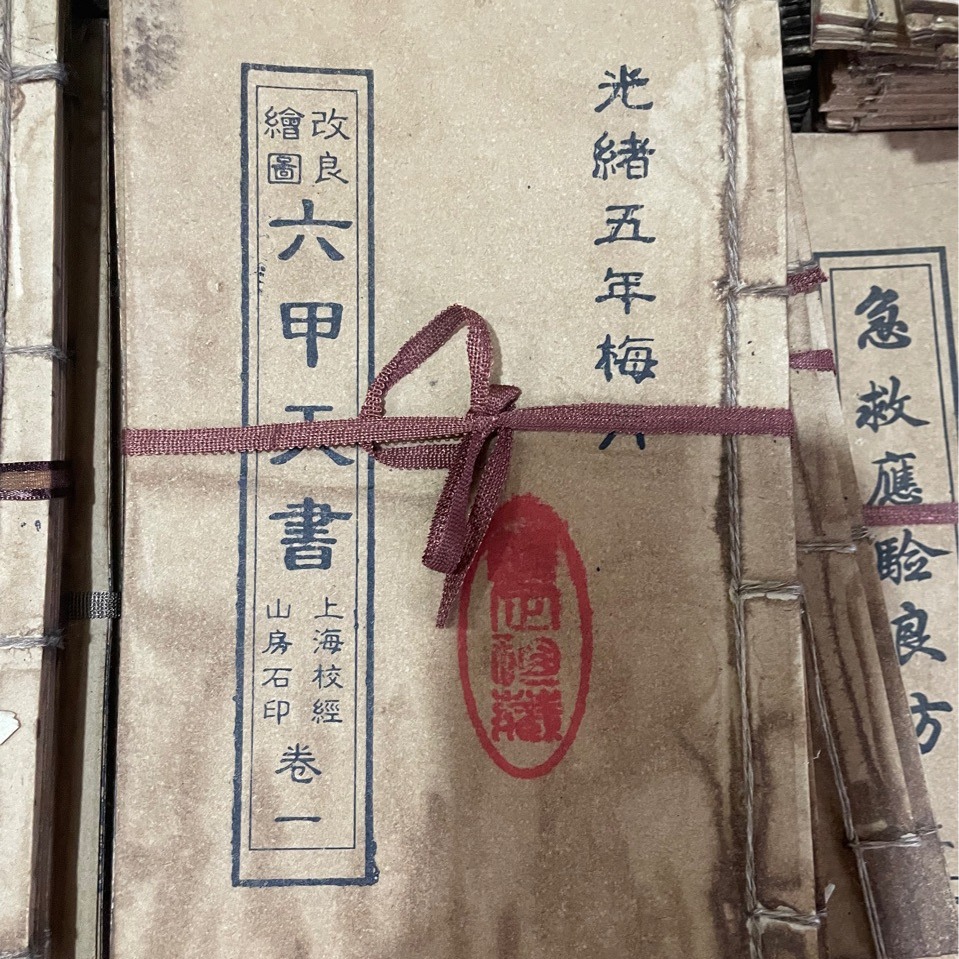 光緒五年梅
改良
繪圖
六甲天書
上海校經
山房石印
卷一
急救應驗良方